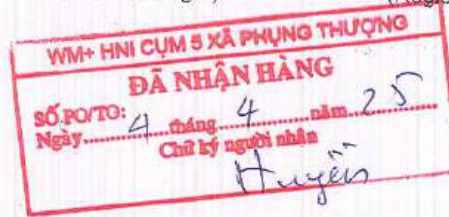 WM+ HNI CỤM 5 XÃ PHỤNG THƯỢNG
ĐÃ NHẬN HÀNG
SỐ PO/TO:
Ngày 4 tháng 4 năm 25
Chữ ký người nhận
Huyền